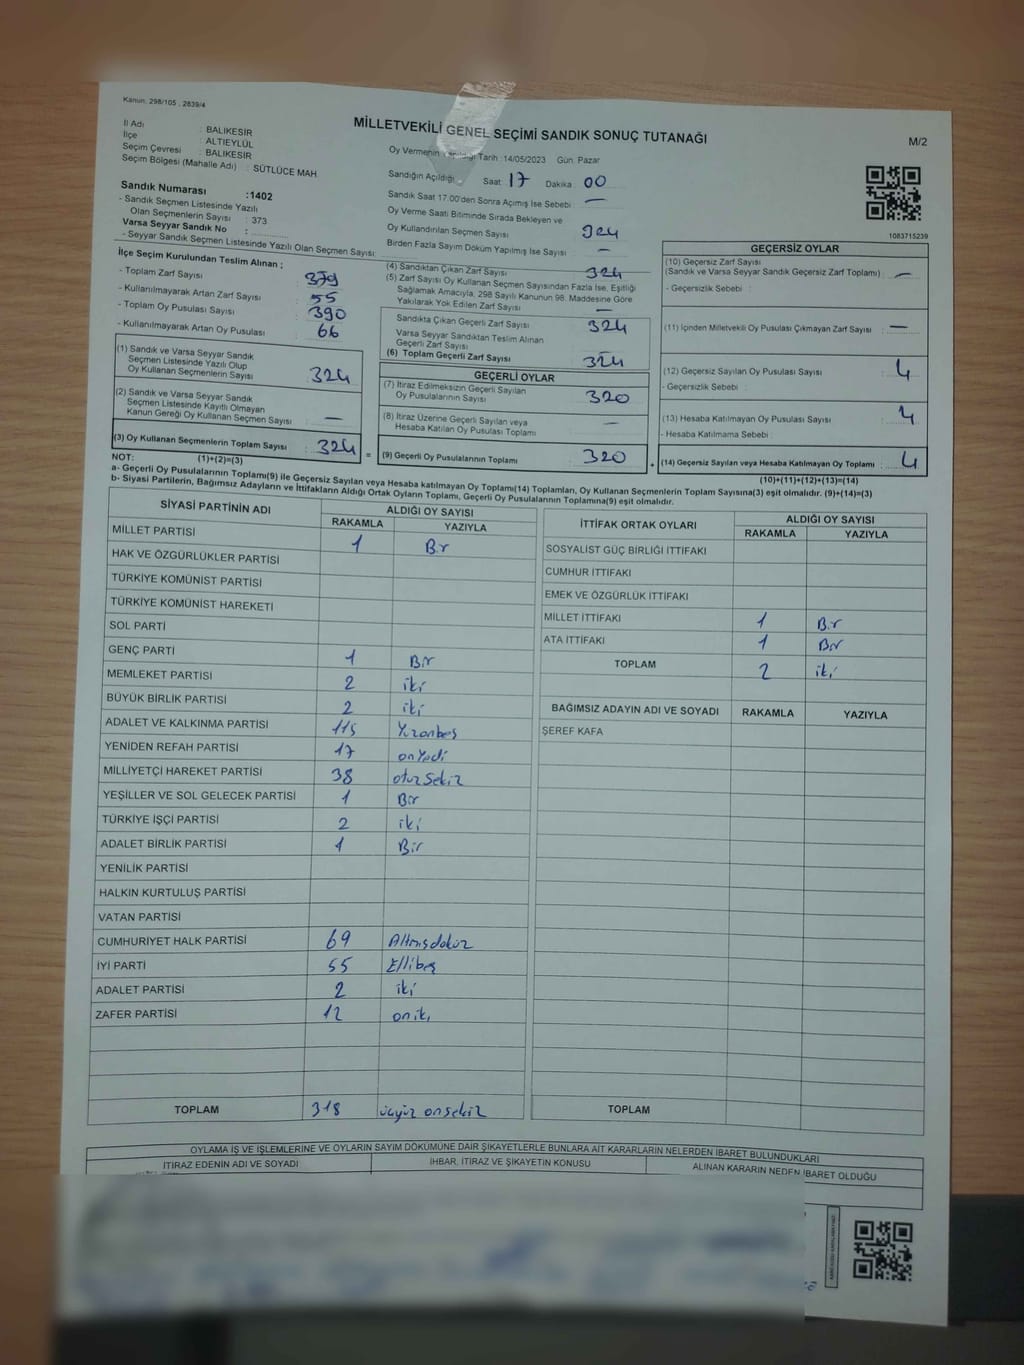 Kanun. 298/105 , 2839/4
MİLLETVEKİLİ GENEL SEÇİMİ SANDIK SONUÇ TUTANAĞI
M/2
İl Adı : BALIKESİR
İlçe : ALTIEYLÜL
Seçim Çevresi : BALIKESİR
Seçim Bölgesi (Mahalle Adı) : SÜTLÜCE MAH.
Sandık Numarası :1402
- Sandık Seçmen Listesinde Yazılı
Olan Seçmenlerin Sayısı : 373
Varsa Seyyar Sandık No :
- Seyyar Sandık Seçmen Listesinde Yazılı Olan Seçmen Sayısı:
Oy Vermenin Tarih :14/05/2023 Gün Pazar
Sandığın Açıldığı Saat: 17 Dakika: 00
Sandık Saat 17.00'den Sonra Açımış İse Sebebi : —
Oy Verme Saati Bitiminde Sırada Bekleyen ve
Oy Kullandırılan Seçmen Sayısı
Birden Fazla Sayım Döküm Yapılmış İse Sayısı : —
1083715239
İlçe Seçim Kurulundan Teslim Alınan ;
- Toplam Zarf Sayısı : 379
- Kullanılmayarak Artan Zarf Sayısı : 55
- Toplam Oy Pusulası Sayısı : 390
- Kullanılmayarak Artan Oy Pusulası : 66
(1) Sandık ve Varsa Seyyar Sandık
Seçmen Listesinde Yazılı Olup
Oy Kullanan Seçmenlerin Sayısı : 324
(2) Sandık ve Varsa Seyyar Sandık
Seçmen Listesinde Kayıtlı Olmayan
Kanun Gereği Oy Kullanan Seçmen Sayısı : —
(3) Oy Kullanan Seçmenlerin Toplam Sayısı : 324
(4) Sandıktan Çıkan Zarf Sayısı : 324
(5) Zarf Sayısı Oy Kullanan Seçmen Sayısından Fazla İse, Eşitliği
Sağlamak Amacıyla, 298 Sayılı Kanunun 98. Maddesine Göre
Yakılarak Yok Edilen Zarf Sayısı : —
Sandıkta Çıkan Geçerli Zarf Sayısı : 324
Varsa Seyyar Sandıktan Teslim Alınan
Geçerli Zarf Sayısı
(6) Toplam Geçerli Zarf Sayısı : 324
GEÇERLİ OYLAR
(7) İtiraz Edilmeksizin Geçerli Sayılan
Oy Pusulalarının Sayısı : 320
(8) İtiraz Üzerine Geçerli Sayılan veya
Hesaba Katılan Oy Pusulası Toplamı : —
= (9) Geçerli Oy Pusulalarının Toplamı : 320 +
GEÇERSİZ OYLAR
(10) Geçersiz Zarf Sayısı
(Sandık ve Varsa Seyyar Sandık Geçersiz Zarf Toplamı) : —
- Geçersizlik Sebebi :
(11) İçinden Milletvekili Oy Pusulası Çıkmayan Zarf Sayısı : —
(12) Geçersiz Sayılan Oy Pusulası Sayısı : 4
- Geçersizlik Sebebi :
(13) Hesaba Katılmayan Oy Pusulası Sayısı : 4
- Hesaba Katılmama Sebebi :
(14) Geçersiz Sayılan veya Hesaba Katılmayan Oy Toplamı : 4
NOT: (1)+(2)=(3)
(10)+(11)+(12)+(13)=(14)
a- Geçerli Oy Pusulalarının Toplamı(9) ile Geçersiz Sayılan veya Hesaba Katılmayan Oy Toplamı(14) Toplamları, Oy Kullanan Seçmenlerin Toplam Sayısına(3) eşit olmalıdır. (9)+(14)=(3)
b- Siyasi Partilerin, Bağımsız Adayların ve İttifakların Aldığı Ortak Oyların Toplamı, Geçerli Oy Pusulalarının Toplamına(9) eşit olmalıdır.
SİYASİ PARTİNİN ADI ALDIĞI OY SAYISI
RAKAMLA YAZIYLA
MİLLET PARTİSİ 1 Bir
HAK VE ÖZGÜRLÜKLER PARTİSİ
TÜRKİYE KOMÜNİST PARTİSİ
TÜRKİYE KOMÜNİST HAREKETİ
SOL PARTİ
GENÇ PARTİ 1 Bir
MEMLEKET PARTİSİ 2 iki
BÜYÜK BİRLİK PARTİSİ 2 iki
ADALET VE KALKINMA PARTİSİ 115 Yüzonbeş
YENİDEN REFAH PARTİSİ 17 onYedi
MİLLİYETÇİ HAREKET PARTİSİ 38 otuzSekiz
YEŞİLLER VE SOL GELECEK PARTİSİ 1 Bir
TÜRKİYE İŞÇİ PARTİSİ 2 iki
ADALET BİRLİK PARTİSİ 1 Bir
YENİLİK PARTİSİ
HALKIN KURTULUŞ PARTİSİ
VATAN PARTİSİ
CUMHURİYET HALK PARTİSİ 69 Altmışdokuz
İYİ PARTİ 55 Ellibeş
ADALET PARTİSİ 2 iki
ZAFER PARTİSİ 12 oniki
TOPLAM 318 üçyüz onsekiz
İTTİFAK ORTAK OYLARI ALDIĞI OY SAYISI
RAKAMLA YAZIYLA
SOSYALİST GÜÇ BİRLİĞİ İTTİFAKI
CUMHUR İTTİFAKI
EMEK VE ÖZGÜRLÜK İTTİFAKI
MİLLET İTTİFAKI 1 Bir
ATA İTTİFAKI 1 Bir
TOPLAM 2 iki
BAĞIMSIZ ADAYIN ADI VE SOYADI RAKAMLA YAZIYLA
ŞEREF KAFA
TOPLAM
OYLAMA İŞ VE İŞLEMLERİNE VE OYLARIN SAYIM DÖKÜMÜNE DAİR ŞİKAYETLERLE BUNLARA AİT KARARLARIN NELERDEN İBARET BULUNDUKLARI
İTİRAZ EDENİN ADI VE SOYADI İHBAR, İTİRAZ VE ŞİKAYETİN KONUSU ALINAN KARARIN NEDEN İBARET OLDUĞU